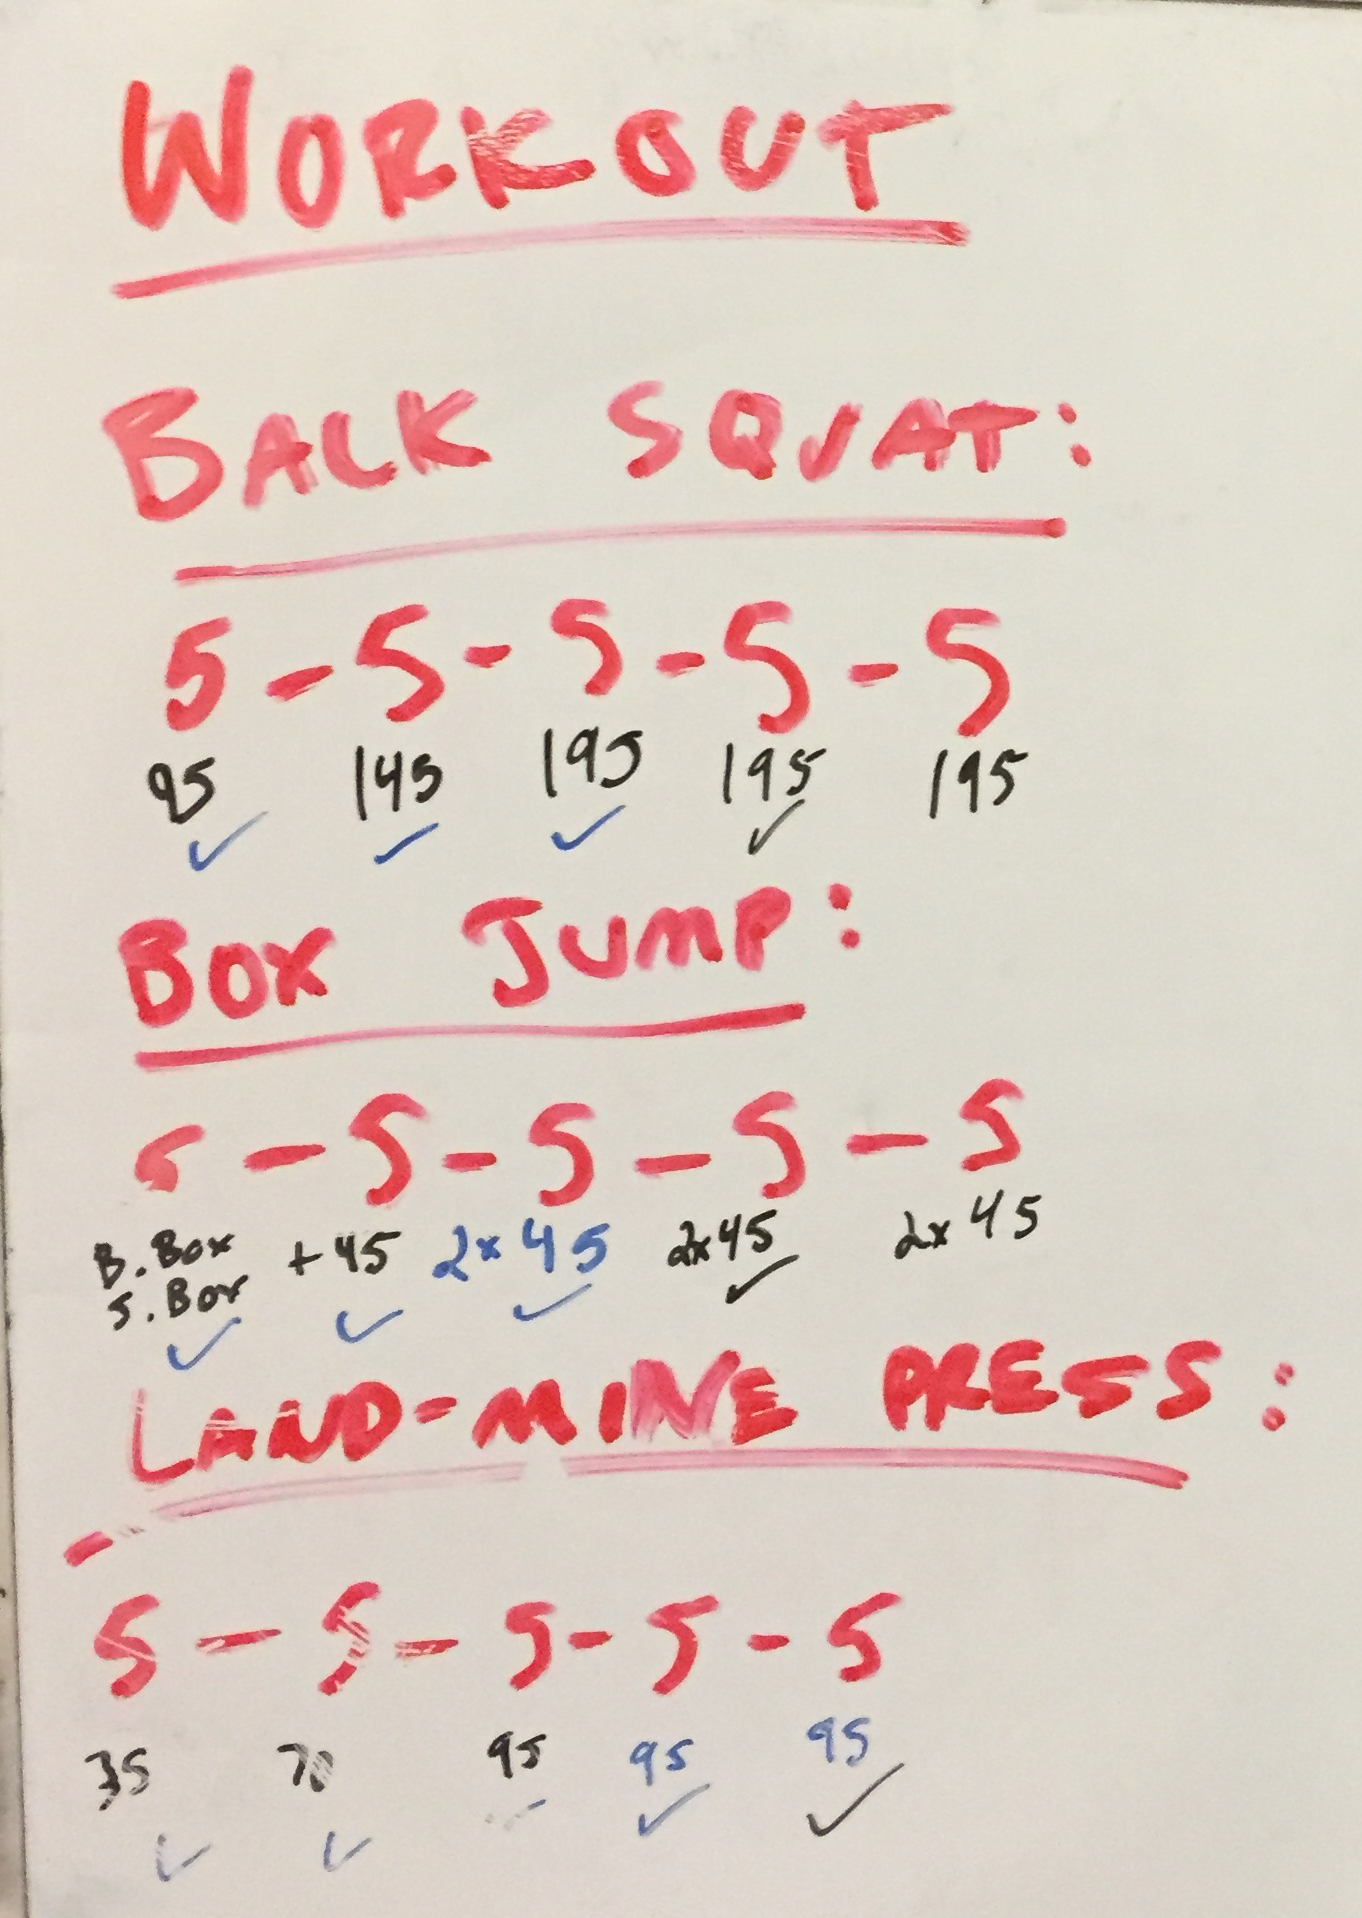 WORKOUT
BACK SQUAT:
5 - 5 - 5 - 5 - 5
95 145 195 195 195
✓ ✓ ✓ ✓
BOX JUMP:
5 - 5 - 5 - 5 - 5
B. Box +45 2x45 2x45 2x45
S. Box
✓ ✓ ✓ ✓
LAND-MINE PRESS:
5 - 5 - 5 - 5 - 5
35 70 95 95 95
✓ ✓ ✓ ✓